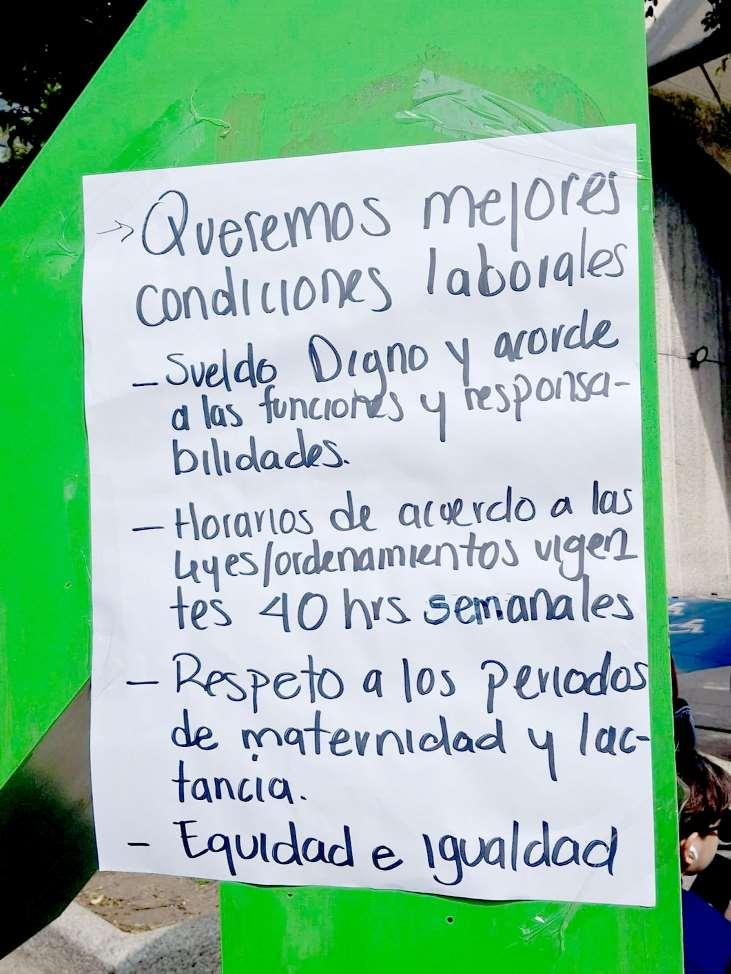 → Queremos mejores
condiciones laborales
- Sueldo Digno y acorde
a las funciones y responsa-
bilidades.
- Horarios de acuerdo a las
leyes/ordenamientos vigen
tes 40 hrs semanales
- Respeto a los periodos
de maternidad y lac-
tancia.
- Equidad e igualdad